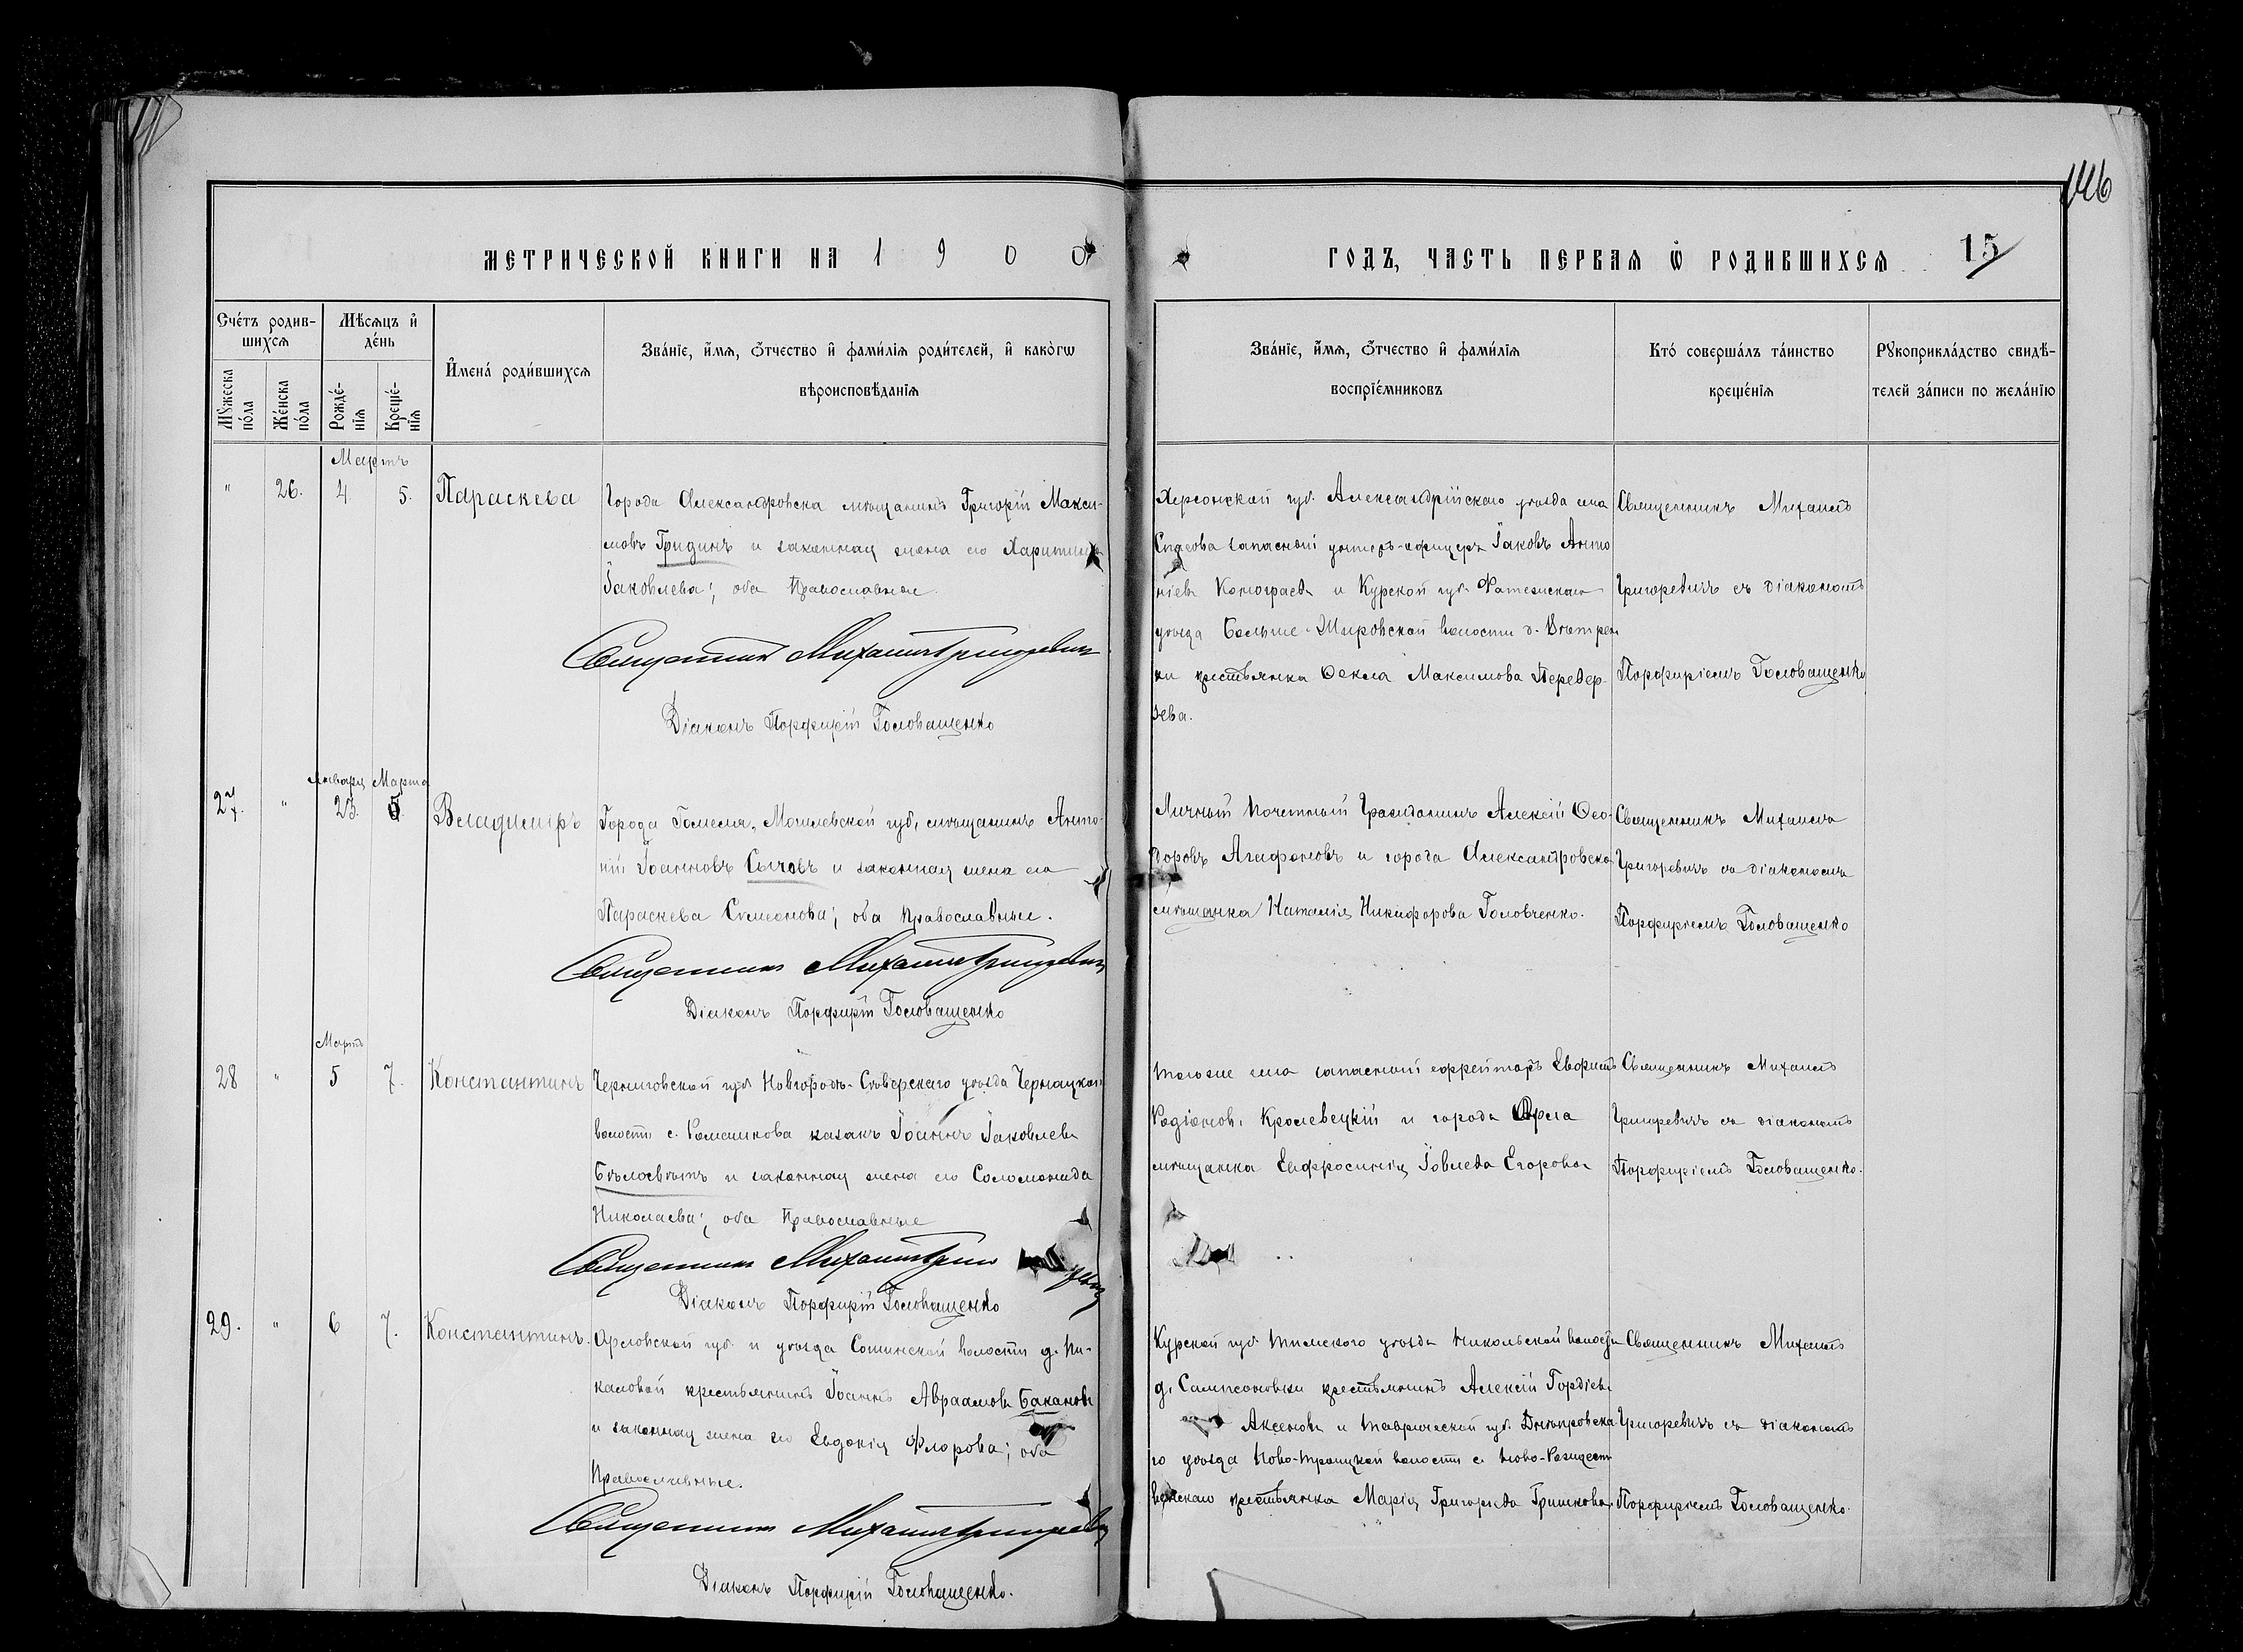 146
МЕТРИЧЕСКОЙ КНИГИ НА 1900
ГОДЪ, ЧАСТЬ ПЕРВАЯ Ѡ РОДИВШИХСЯ 15
Счéтъ родив-
шихсѧ
Мѣсяцъ и҆
дéнь
Мꙋ́жеска
пóла
Жéнска
пóла
Рождé-
нїѧ
Крещé-
нїѧ
И҆менá роди́вшихсѧ
Звáнїе, и҆́мѧ, ѻ҆́тчество и҆ фами́лїѧ роди́телей, и҆ какóгѡ
вѣроисповѣ́данїѧ
Звáнїе, и҆́мѧ, ѻ҆́тчество и҆ фами́лїѧ
воспрїéмниковъ
Ктó совершáлъ тáинство
крещéнїѧ
Рꙋкоприклáдство свидѣ́-
телей зáписи по желáнїю
Мартъ
" 26. 4. 5. Параскева
Города Александровска мѣщанинъ Григорій Макси-
мовъ Гридинъ и законная жена его Харитина
Іаковлева; оба Православные.
Священникъ Михаилъ Григоревичъ
Діаконъ Порфирій Головащенко
Херсонской губ. Александрійскаго уѣзда села
Спасова запасной унтеръ-офицеръ Іаковъ Анто
ніевъ и Курской губ. Фатежскаго
уѣзда Больше-Жировской волости д.
ки крестьянка Ѳекла Максимова Перевер-
зева.
Священникъ Михаилъ
Григоревичъ съ діакономъ
Порфиріемъ Головащенко
Января Марта
27. " 23. 5. Владимиръ
Города Гомеля, Могилевской губ, мѣщанинъ Анто-
ній Іоанновъ Сычовъ и законная жена его
Параскева Симеонова; оба Православные.
Священникъ Михаилъ Григоревичъ
Діаконъ Порфирій Головащенко
Личный Почетный Гражданинъ Алексій Ѳео-
доровъ Агафоновъ и города Александровска
мѣщанка Наталія Никифорова Головченко.
Священникъ Михаилъ
Григоревичъ съ діакономъ
Порфиріемъ Головащенко
Мартъ
28 " 5 7. Константинъ
Черниговской губ Новгородъ-Сѣверскаго уѣзда Чернацкой
волости с. Ромашкова казакъ Іоаннъ Іаковлевъ
и законная жена его Соломонида
Николаева; оба Православные
Священникъ Михаилъ Григоревичъ
Діаконъ Порфирій Головащенко
того же села запасной ефрейторъ Евфимъ
Родіоновъ Кролевецкій и города Орла
мѣщанка Евфросинія Іовлева Егорова
Священникъ Михаилъ
Григоревичъ съ діакономъ
Порфиріемъ Головащенко.
29. " 6 7. Константинъ.
Орловской губ. и уѣзда волости д. Пи-
каловой крестьянинъ Іоаннъ Авраамовъ Бакановъ
и законная жена его Евдокія Флорова; оба
Православные.
Священникъ Михаилъ Григоревичъ
Діаконъ Порфирій Головащенко.
Курской губ. Тимскаго уѣзда Никольской волости
д. Сампсоновки крестьянинъ Алексій Гордіевъ
Аксеновъ и Таврической губ. Днѣпровска
го уѣзда Ново-Троицкой волости с. Ново-Рождест
венскаго крестьянка Марія Григорьева Гришкова.
Священникъ Михаилъ
Григоревичъ съ діакономъ
Порфиріемъ Головащенко.